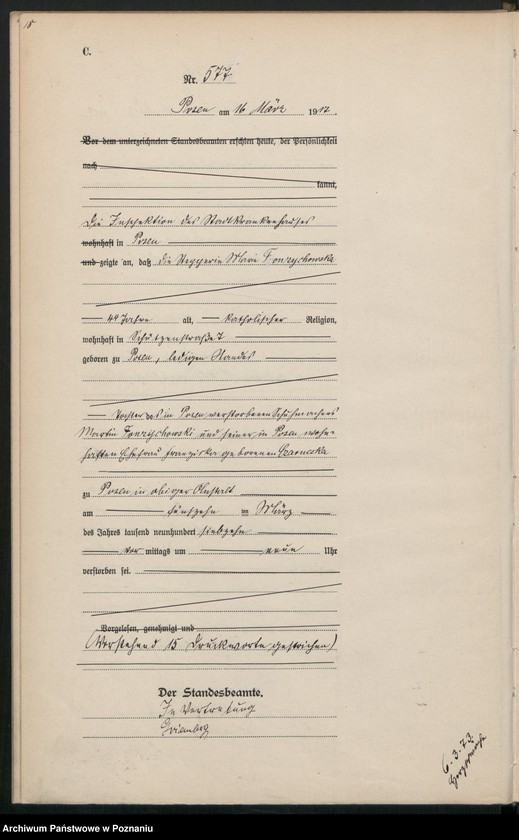 15
C.
Nr. 577
Posen am 16 März 1917.
Vor dem unterzeichneten Standesbeamten erschien heute, der Persönlichkeit
nach
kannt,
Die Inspektion des Stadtkrankenhauses
wohnhaft in Posen
und zeigte an, daß die Stepperin Marie
49 Jahre alt, katholischer Religion,
wohnhaft in Schützenstraße 7
geboren zu Posen, ledigen Standes
Tochter des in Posen verstorbenen Schuhmachers
Martin und seiner in Posen wohn-
haften Ehefrau Franziska geborenen
zu Posen in obiger Anstalt
am fünfzehn ten März
des Jahres tausend neunhundert siebzehn
vor mittags um neun Uhr
verstorben sei.
Vorgelesen, genehmigt und
(Vorstehend 15 Druckworte gestrichen)
Der Standesbeamte.
In Vertretung
6.3.73
Archiwum Państwowe w Poznaniu